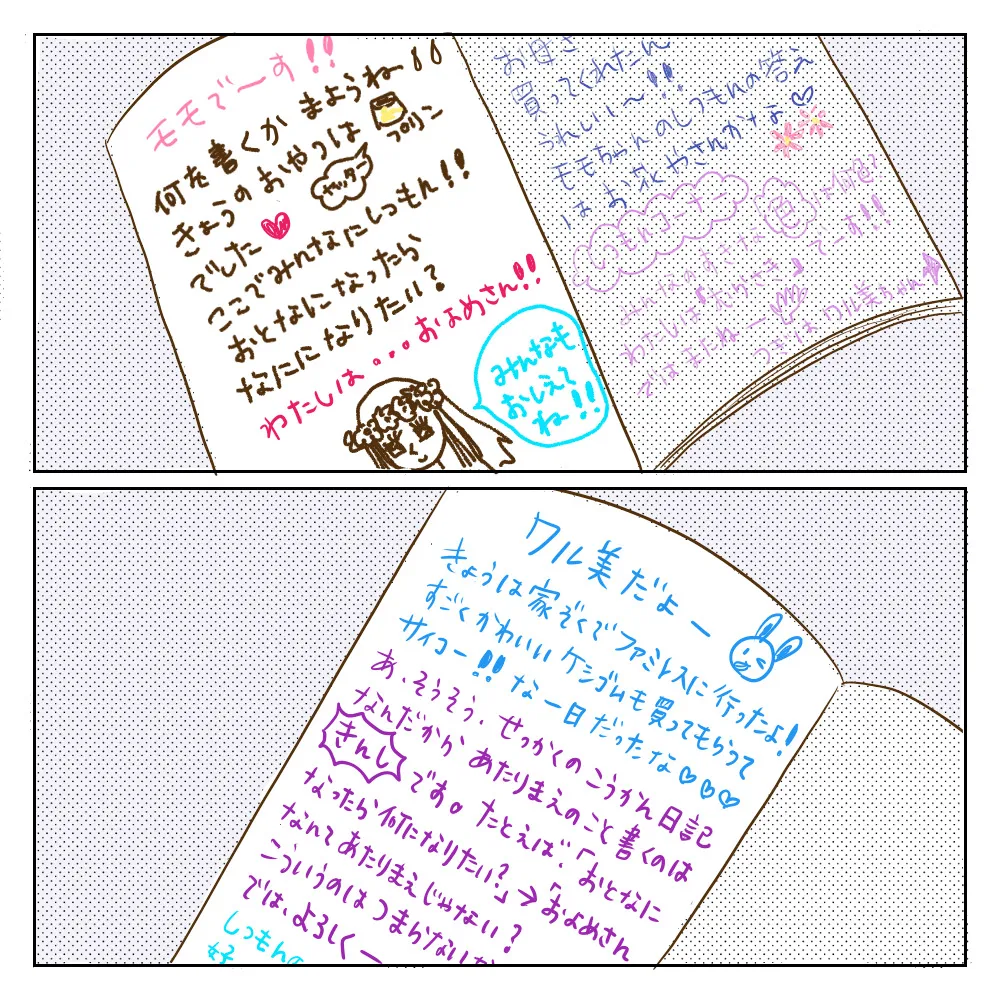 モモでーす!!
何を書くか まようね〜!!
きょうの おやつは プリン
でした♥ ヤッター
ここで みんなに しつもん!!
おとなに なったら
なにに なりたい?
わたしは・・・およめさん!!
みんなも
おしえて
ね!!
お母さ
買ってくれたん
うれしい〜!!
モモちゃんのしつもんの答え
は お花やさんかナな♡
しつもんコーナー
みんなのすきな色は何色?
わたしは『むらさき』でーす!!
ではまたねー
つぎは ワル美ちゃん
ワル美だよー
きょうは家ぞくでファミレスに行ったよ!
すごくかわいいケシゴムも買ってもらって
サイコー!!な一日だったな♡♡♡
あ、そうそう、せっかくのこうかん日記
なんだから あたりまえのこと書くのは
きんし です。たとえば、「おとなに
なったら何になりたい?」→「およめさん
なんてあたりまえじゃない?
こういうのは つまらない
では、よろしくー
しつもんの
好